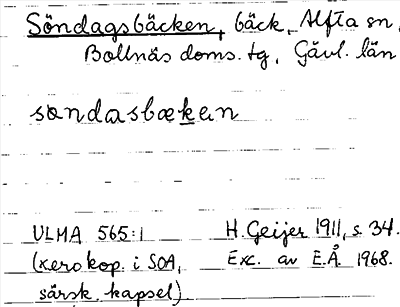 Söndagsbäcken, bäck, Alfta sn,
Bollnäs doms. tg, Gävl. län
sɷndasbækɛn
ULMA 565:1 H. Geijer 1911, s. 34.
(xerokop. i SOA, Exc. av E.Å. 1968.
särsk. kapsel)